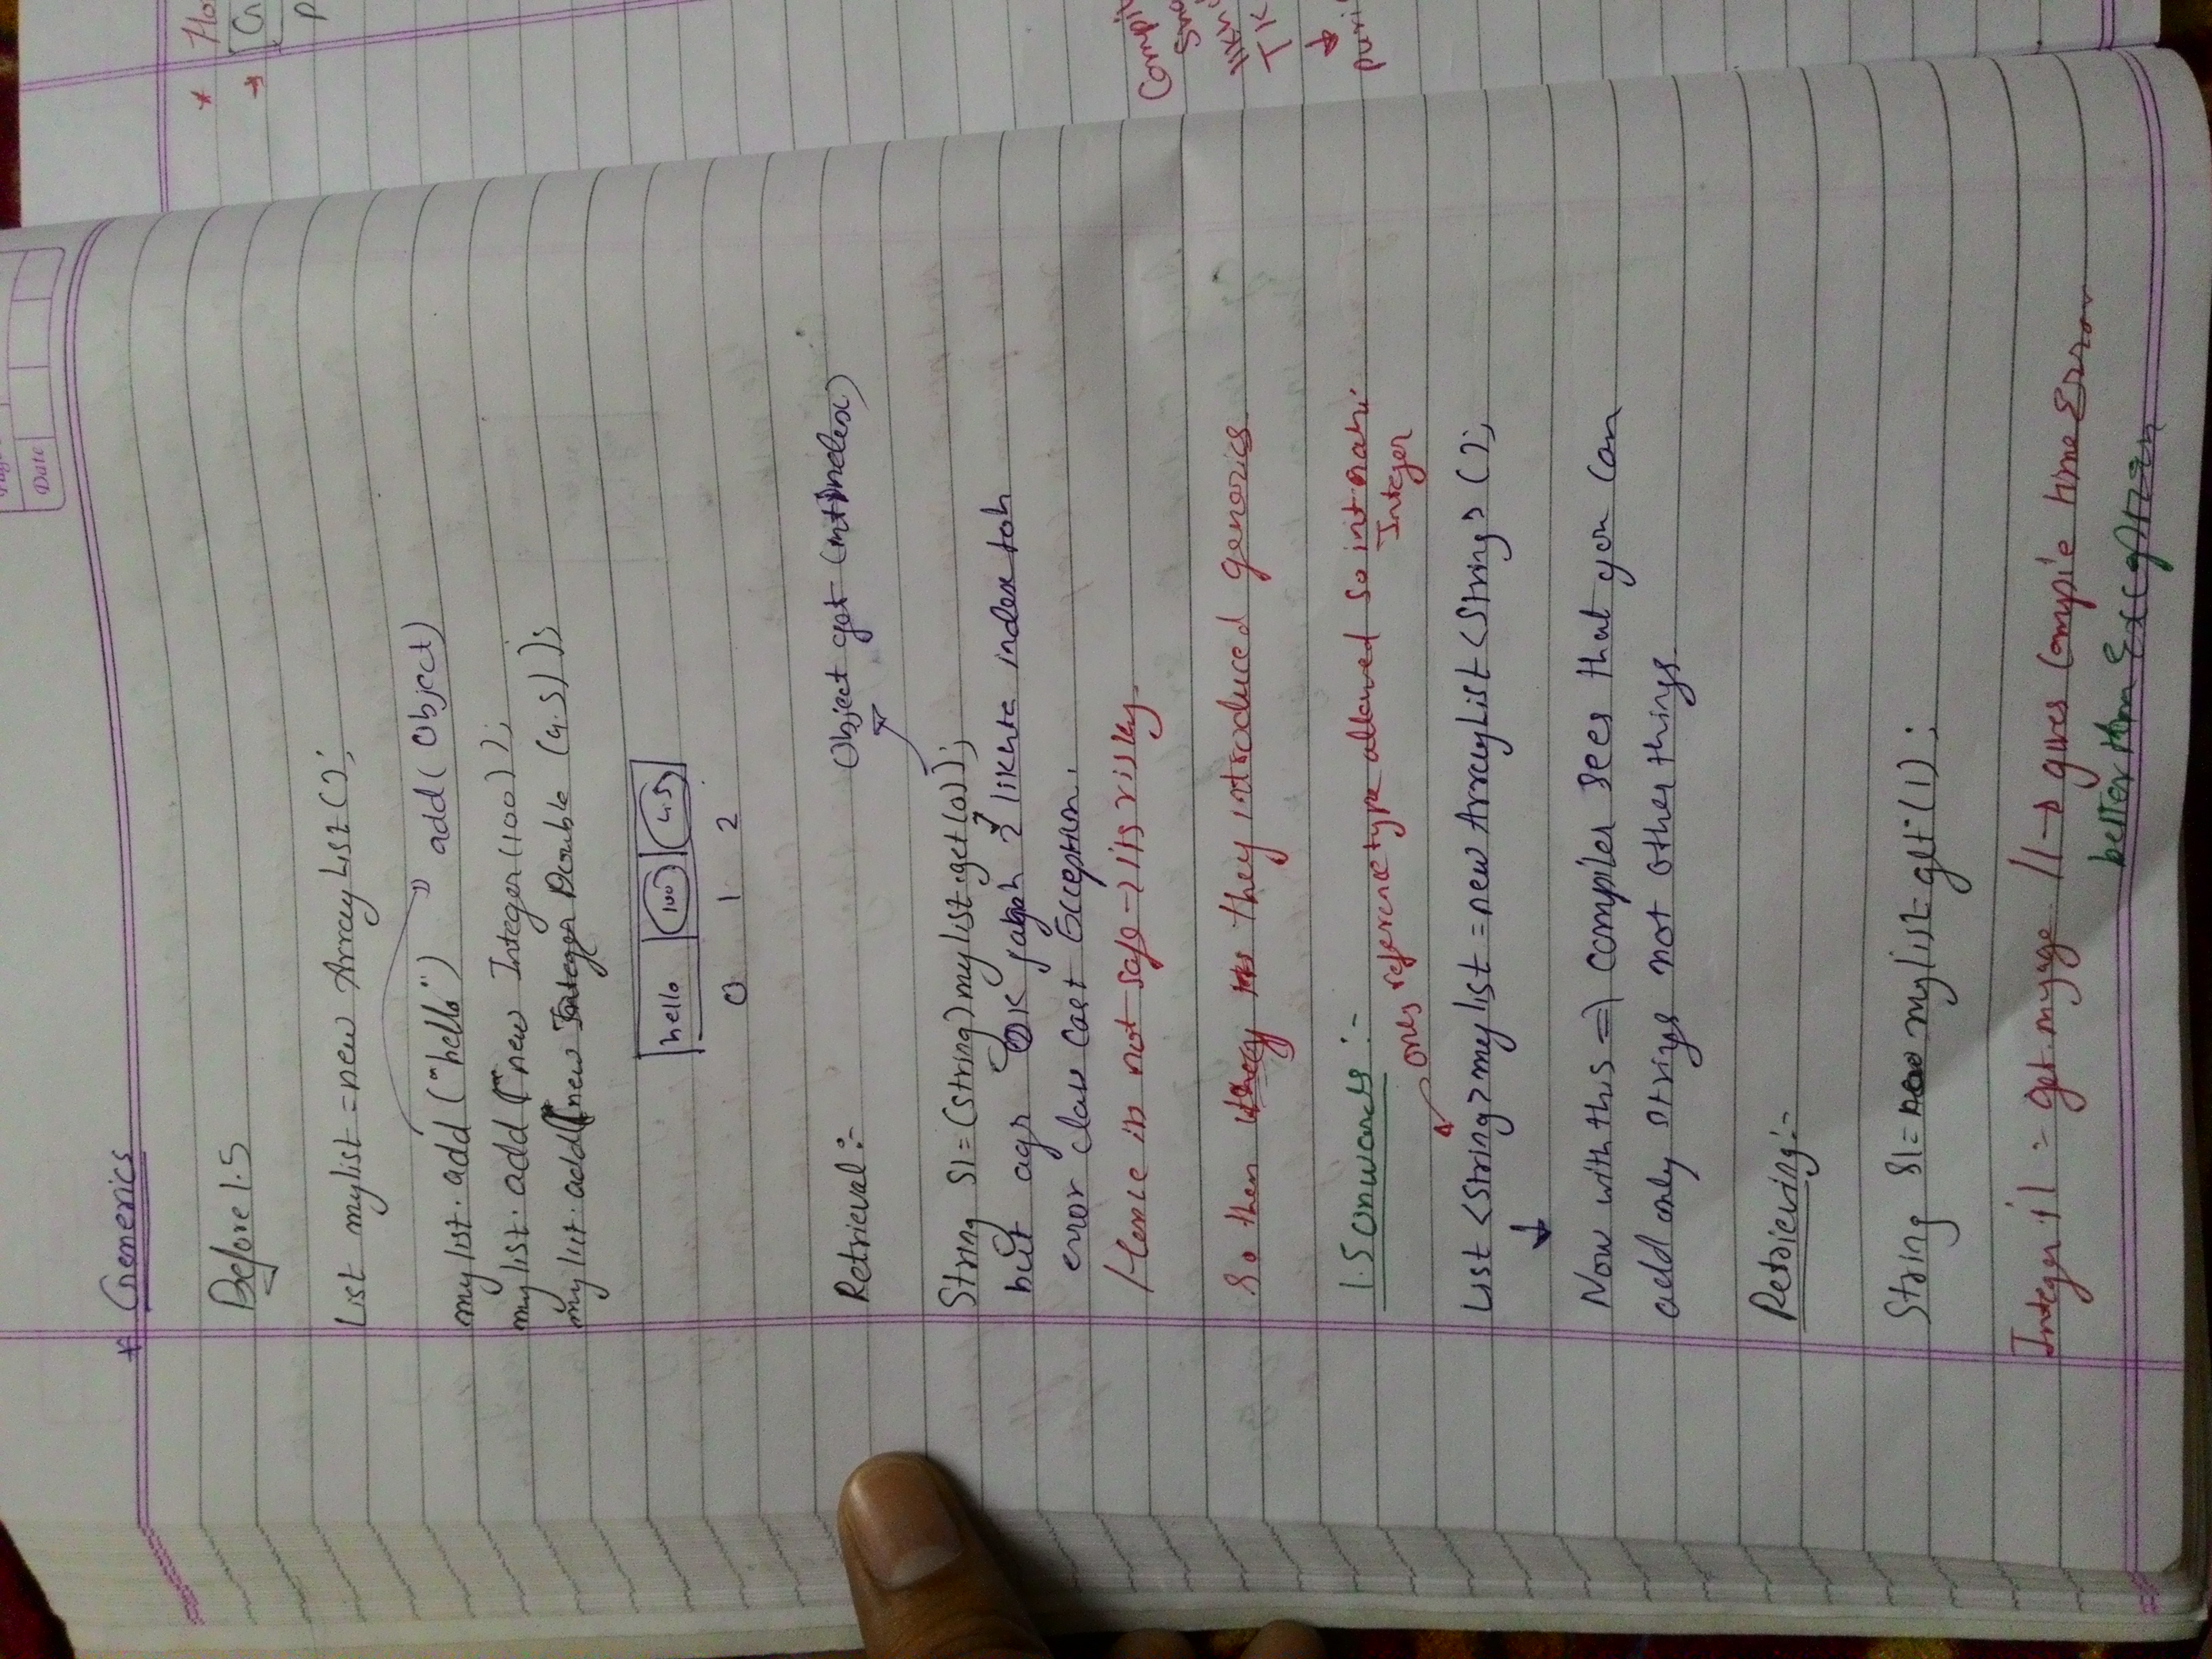 Date
* Generics
Before 1.5
List mylist = new ArrayList();
mylist. add ("hello") → add( Object)
mylist. add ("new Integer(100));
mylist. add (new Integer Double (4.5));
hello 100 4.5
0 1 2
Retrieval :-
Object get (int index)
String S1 = (string) mylist.get(0));
but agr 0 K jagah 2 likhte index toh
error class cast Exception.
Hence its not safe → its risky
So then they they introduced generics
1.5 onwards :-
only reference type allowed so int nahi
Integer
List <String> mylist = new ArrayList <String> ();
↓
Now with this ⇒ compiler sees that you can
add only strings not other things.
Retrieving :-
String S1 = new mylist.get(1);
Integer i1 = get.myage //→ gives compile time Error
better than Exception
* Ho
→ G
P
Compil
Sho
likh
TK
↓
puri